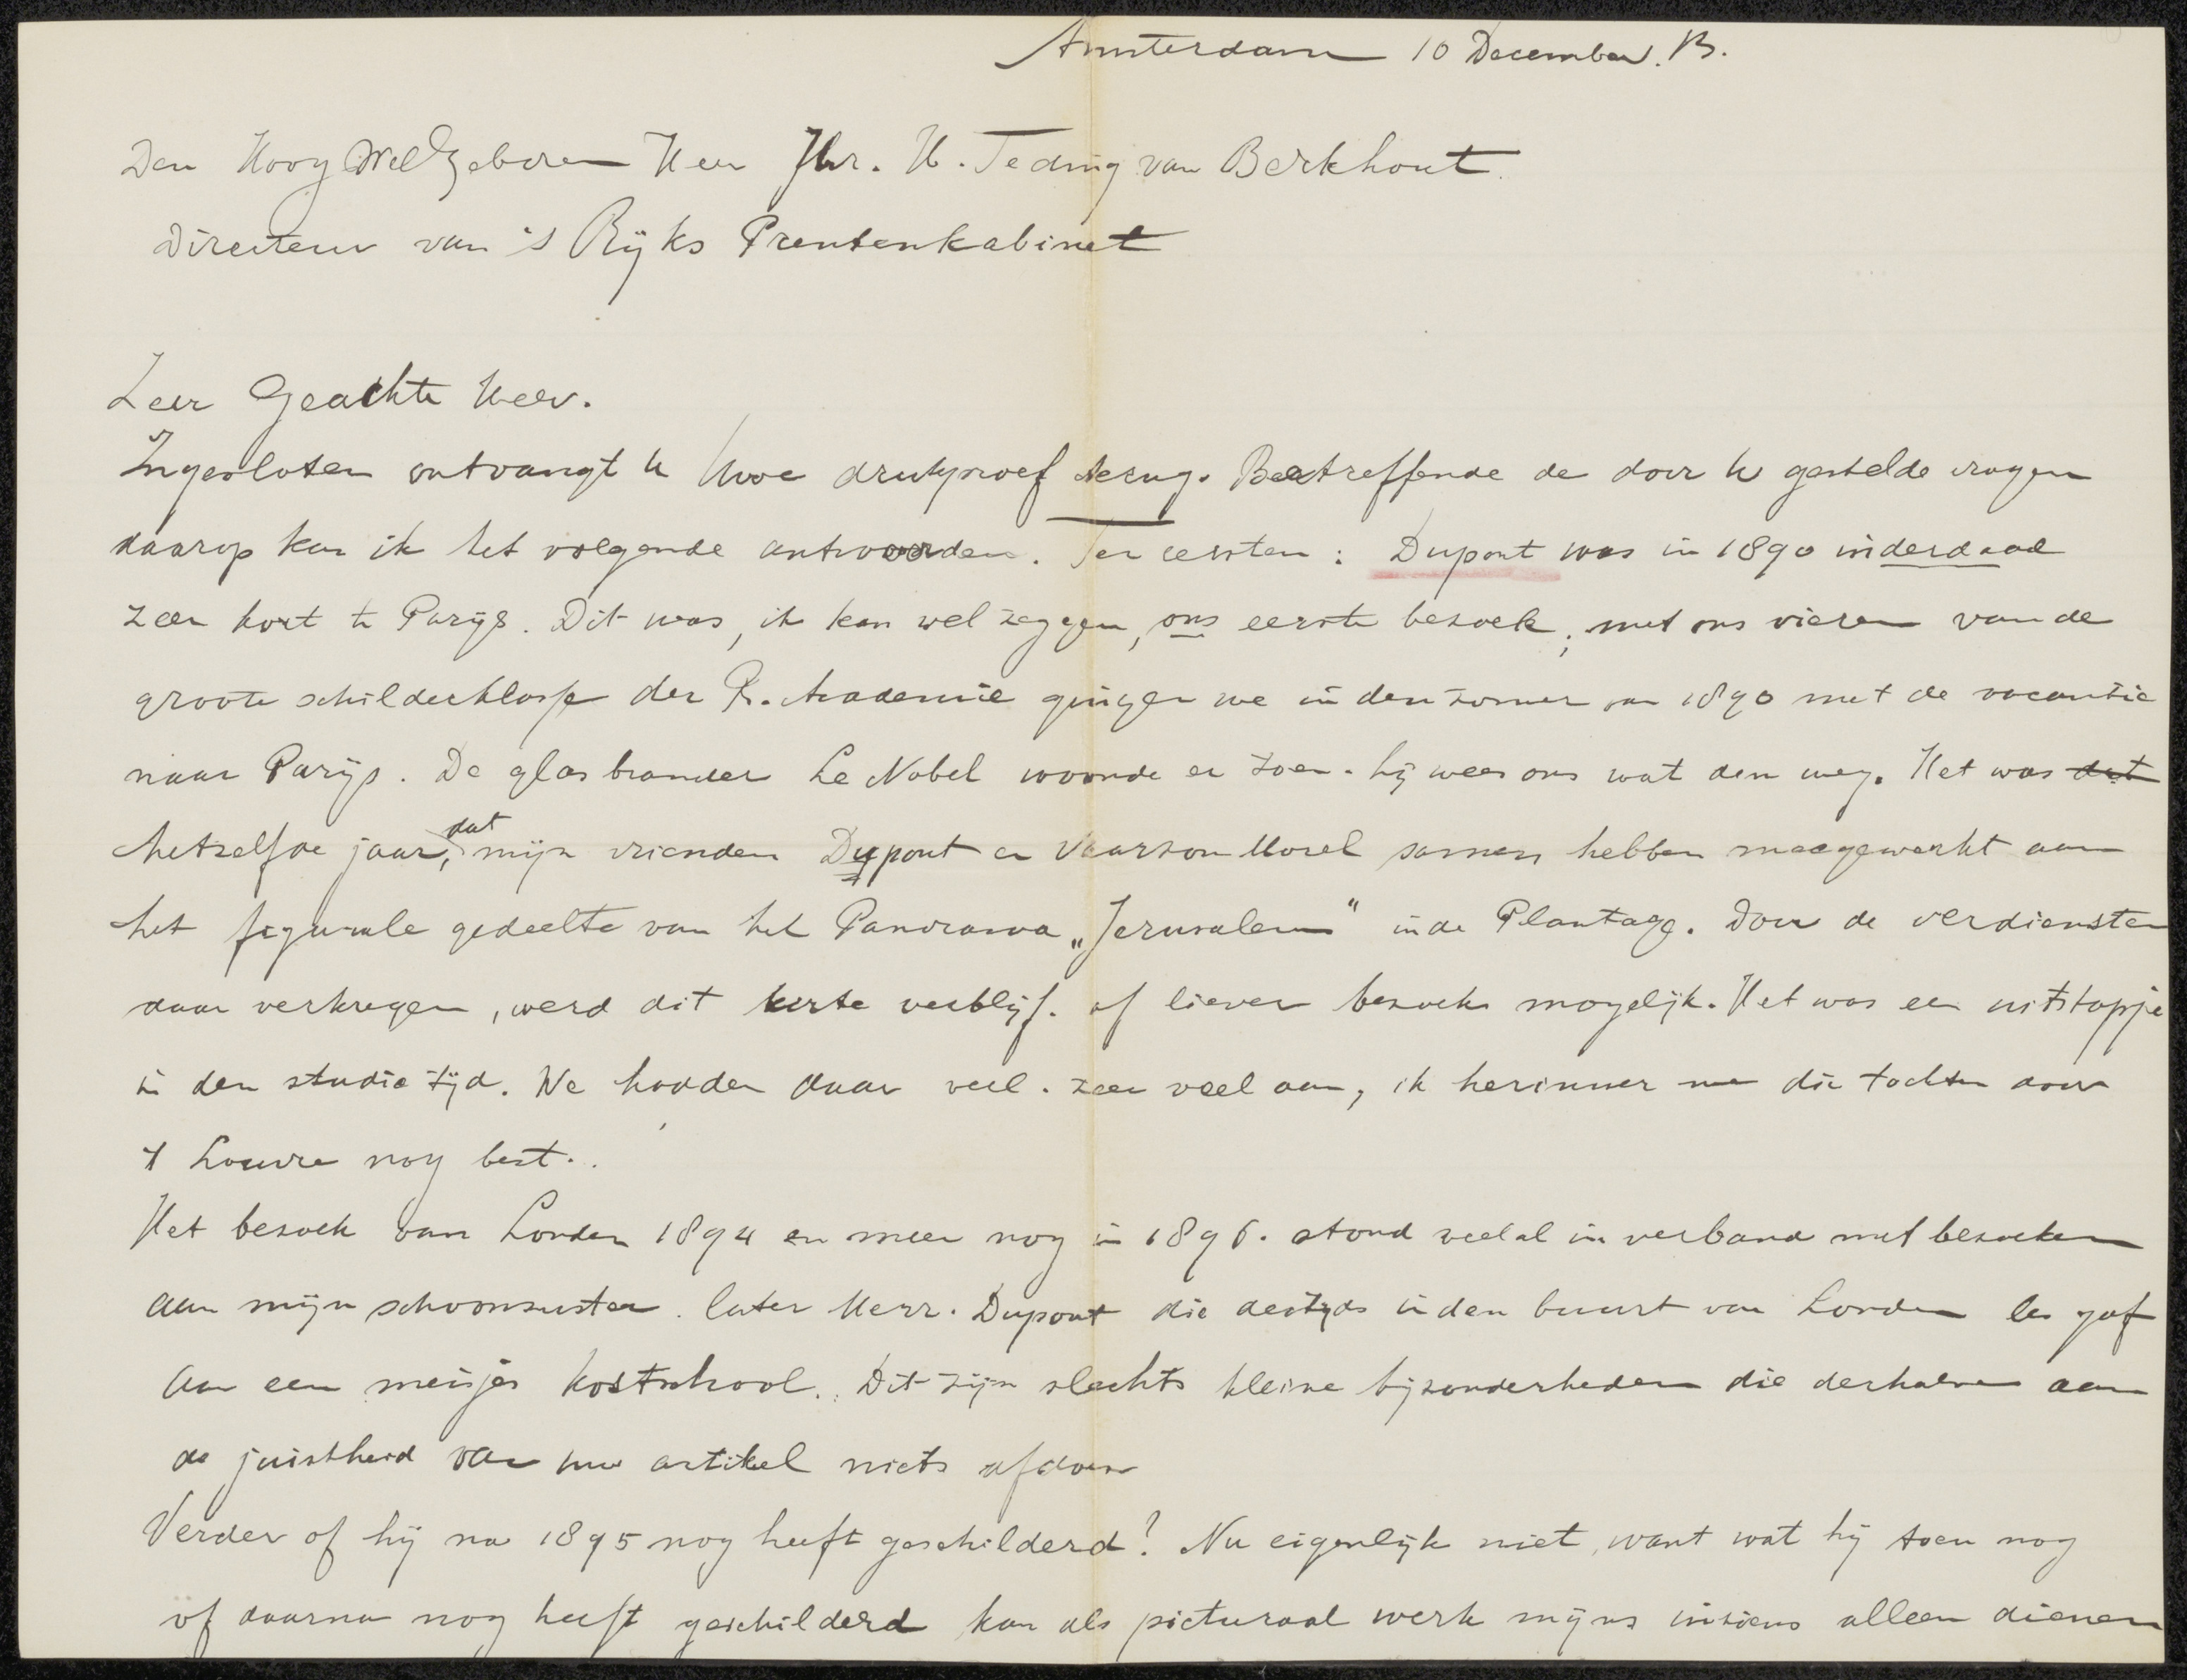 Amsterdam 10 December. 13.
Den HoogWelgeboren Heer Jhr. H. Teding van Berkhout
Directeur van 's Rijks Prentenkabinet
Zeer Geachte Heer.
Ingesloten ontvangt U Uwe drukproef terug. Betreffende de door U gestelde vragen
daarop kan ik het volgende antwoorden. Ten eersten: Dupont was in 1890 inderdaad
zeer kort te Parijs. Dit was, ik kan wel zeggen, ons eerste bezoek; met ons vieren van de
groote schilderklasse der R. Academie gingen we in den zomer van 1890 met de vacantie
naar Parijs. De glasbrander Le Nobel woonde er toen. hij wees ons wat den weg. Het was dat
hetzelfde jaar, dat mijn vrienden Dupont en Vaarzon Morel samen hebben meegewerkt aan
het figurale gedeelte van het Panorama „Jerusalem" in de Plantage. Door de verdiensten
daar verkregen, werd dit korte verblijf. of liever bezoek mogelijk. Het was een uitstapje
in den studie tijd. We hadden daar veel. zeer veel aan, ik herinner me die tochten door
't Louvre nog best..
Het bezoek van Londen 1894 en meer nog in 1896. stond veelal in verband met bezoeken
aan mijn schoonzuster. later Mevr. Dupont die destijds in den buurt van Londen les gaf
aan een meisjes kostschool. Dit zijn slechts kleine bijzonderheden die derhalve aan
de juistheid van uw artikel niets afdoen
Verder of hij na 1895 nog heeft geschilderd? Nu eigenlijk niet, want wat hij toen nog
of daarna nog heeft geschilderd kan als picturaal werk mijns inziens alleen dienen